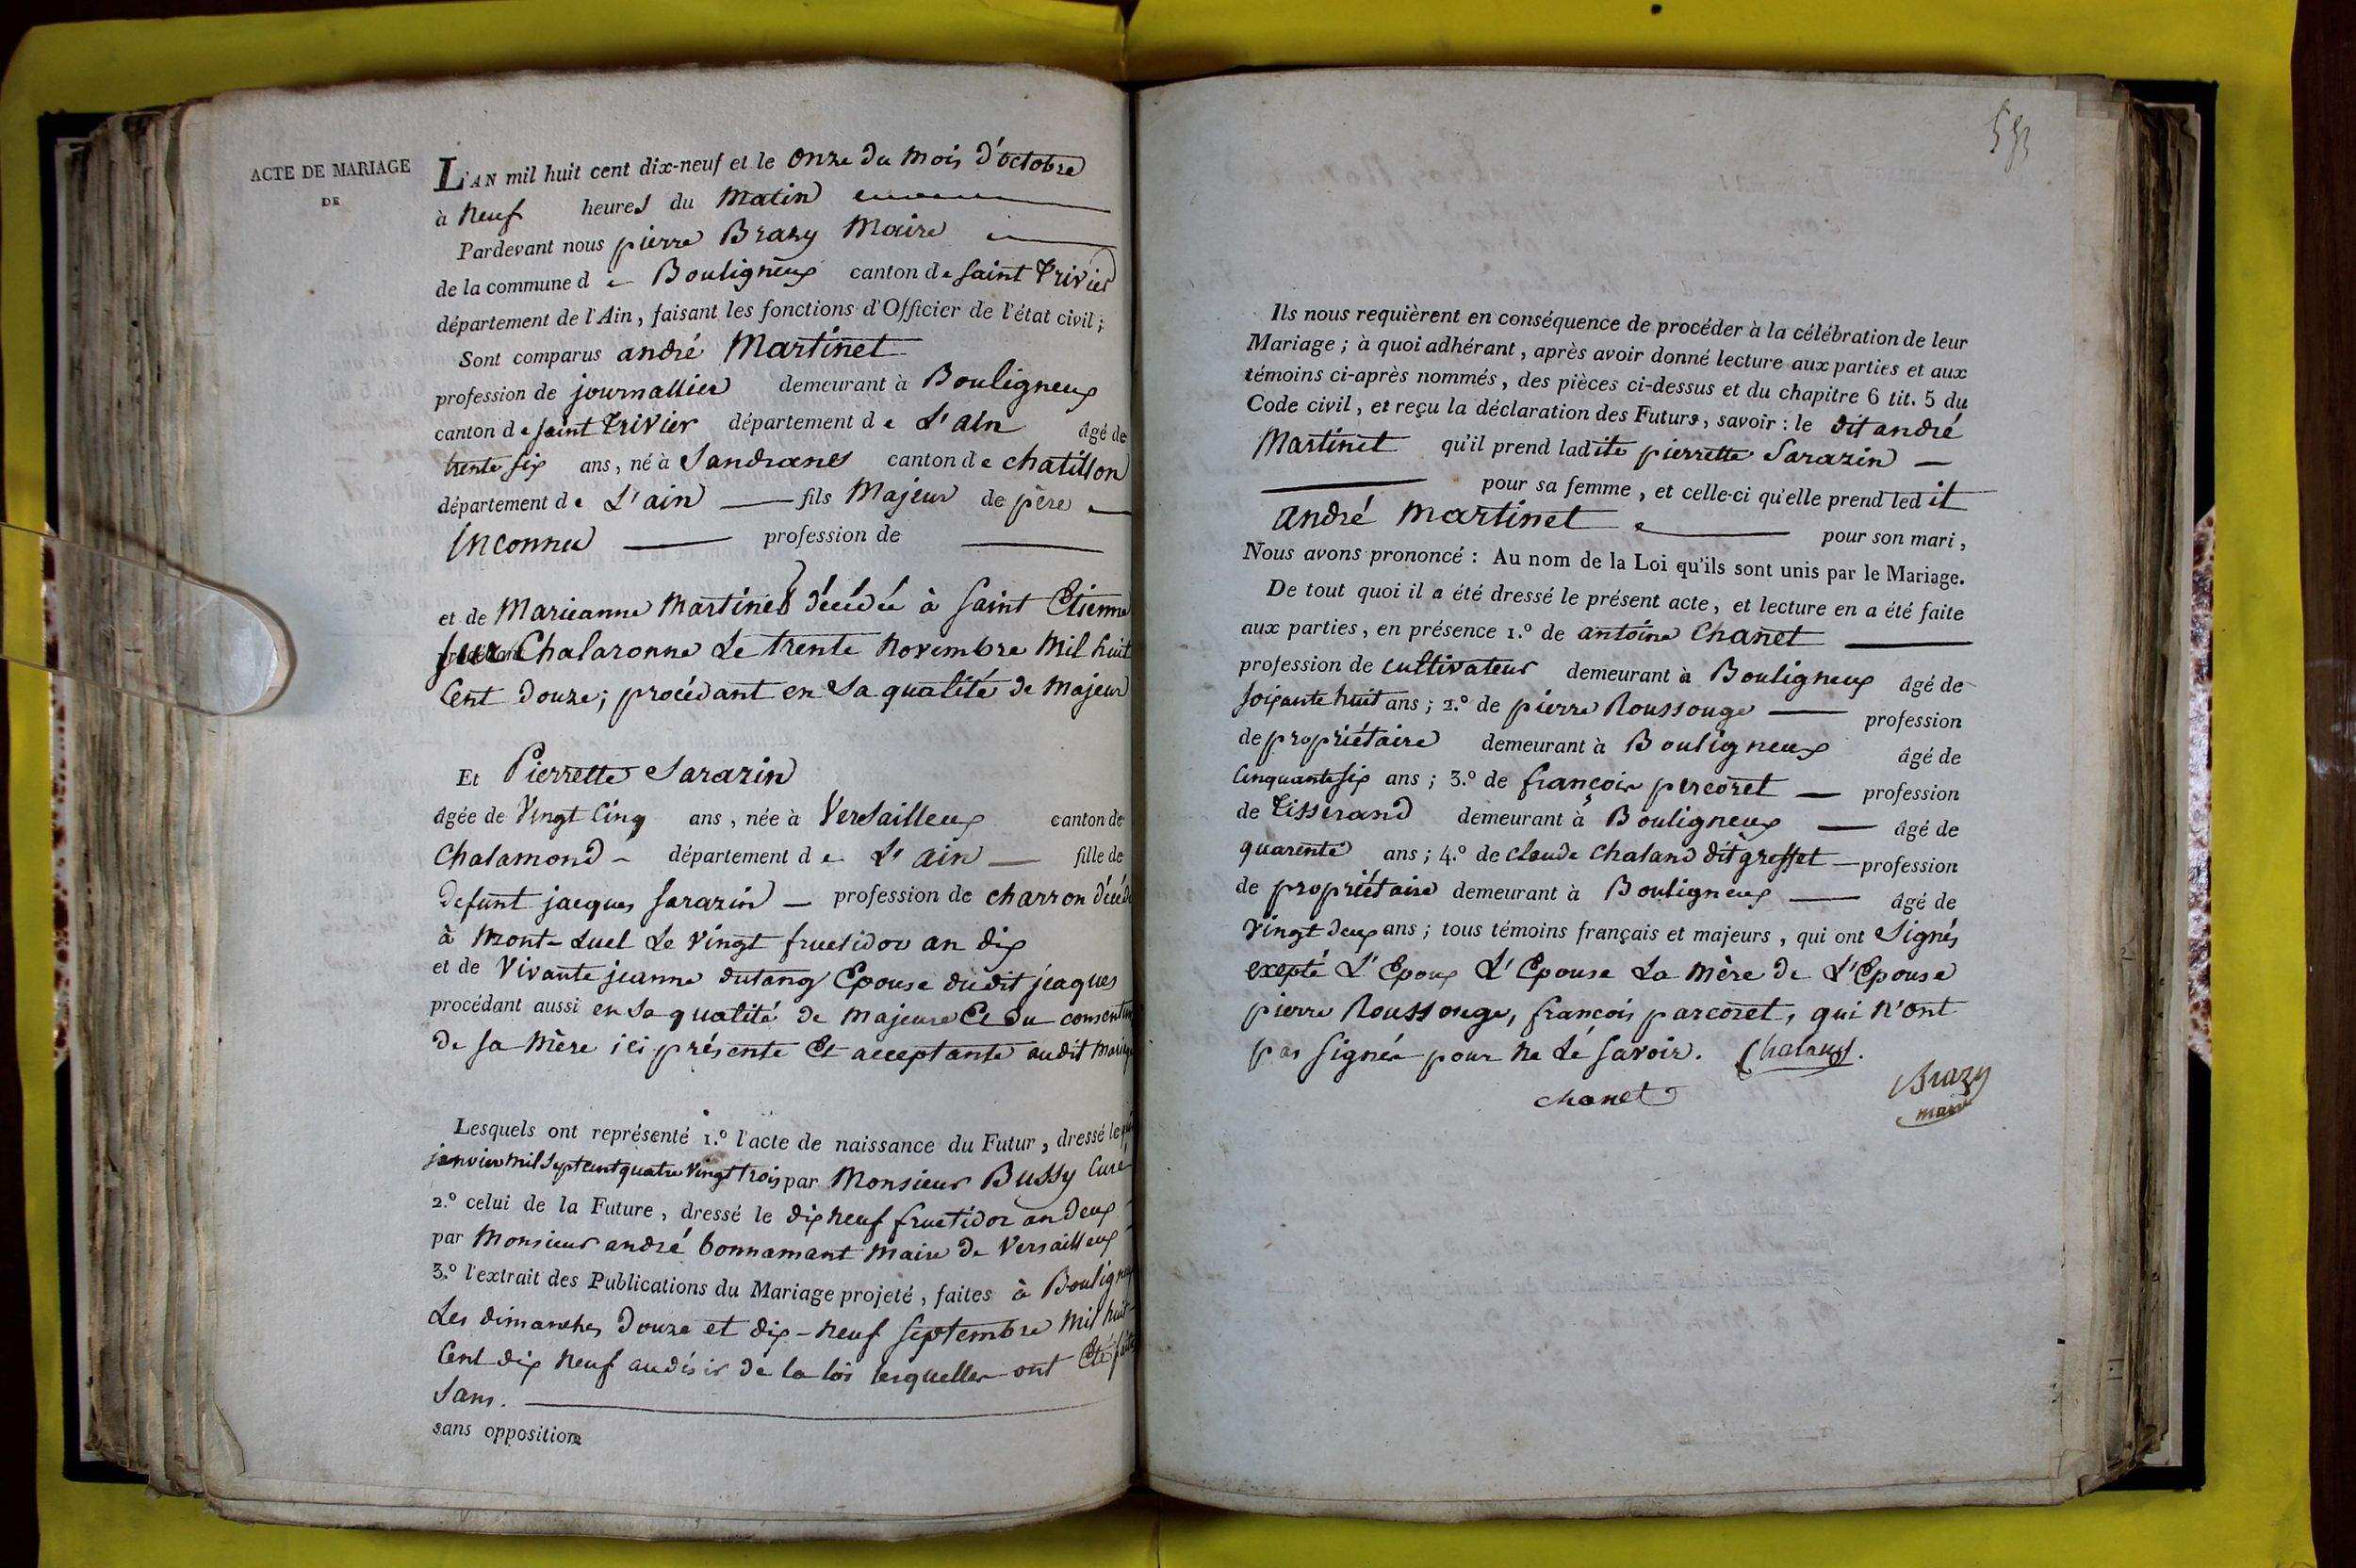 ACTE DE MARIAGE
DE
L'AN mil huit cent dix-neuf et le onze du mois d'octobre
à neuf heures du matin
Pardevant nous pierre Brazy Maire
de la commune de Bouligneux canton de saint trivier
département de l'Ain, faisant les fonctions d'Officier de l'état civil;
Sont comparus andré Martinet
profession de journallier demeurant à Bouligneux
canton de saint trivier département de L'ain âgé de
trente six ans, né à Sandrans canton de chatillon
département de L'ain fils Majeur de père
inconnu profession de
et de Marieanne Martinet décédée à saint Etienne
sur Chalaronne Le trente Novembre Mil huit
Cent douze; procédant en sa qualité de Majeur
Et Pierrette Sarazin
âgée de Vingt Cinq ans, née à Versailleux canton de
Chalamond département de L'ain fille de
defunt jacques sarazin profession de charron décédé
à Mont-Luel Le vingt fructidor an dix
et de Vivante jeanne dutang Epouse dudit jeaques
procédant aussi en sa qualité de majeure Et du consentem
de sa Mère ici présente Et acceptante audit Mariage
Lesquels ont représenté 1.º l'acte de naissance du Futur, dressé le
janvier mil Sept cent quatre vingt trois par Monsieur Bussy Curé
2.º celui de la Future, dressé le dix neuf fructidor an deux
par Monsieur andré bonnamant Maire de Versailleux
3.º l'extrait des Publications du Mariage projeté, faites à Bouligneux
Les dimanches douze et dix-neuf septembre Mil huit
Cent dix neuf au désir de la loi lesquelles ont Eté faites
Sans.
sans opposition
Ils nous requièrent en conséquence de procéder à la célébration de leur
Mariage; à quoi adhérant, après avoir donné lecture aux parties et aux
témoins ci-après nommés, des pièces ci-dessus et du chapitre 6 tit. 5 du
Code civil, et reçu la déclaration des Futurs, savoir: le dit andré
Martinet qu'il prend ladite pierrette Sarazin
pour sa femme, et celle-ci qu'elle prend ledit
andré martinet pour son mari,
Nous avons prononcé: Au nom de la Loi qu'ils sont unis par le Mariage.
De tout quoi il a été dressé le présent acte, et lecture en a été faite
aux parties, en présence 1.º de antoine Chanet
profession de cultivateur demeurant à Bouligneux âgé de
soixante huit ans; 2.º de pierre Roussouge profession
de propriétaire demeurant à Bouligneux âgé de
Cinquante six ans; 3.º de françois percoret profession
de tisserand demeurant à Bouligneux âgé de
quarente ans; 4.º de claude chaland dit greffet profession
de propriétaire demeurant à Bouligneux âgé de
vingt deux ans; tous témoins français et majeurs, qui ont Signés
exepté L'Epoux L'Epouse La Mère de L'Epouse
pierre Roussouge, francois parcoret, qui n'ont
pas signés pour ne Le savoir. Chaland.
Brazy
chanet
maire